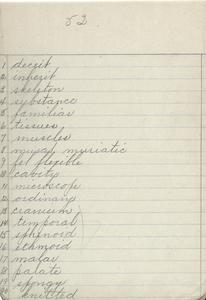 52.
1 deceit
2 inherit
3 skeleton
4 substance
5 familiar
6 tissues
7 muscles
8 muriatic
9 flexible
10 cavity
11 microscope
12 ordinary
13 cranium
14 temporal
15 sphenoid
16 ethmoid
17 malar
18 palate
19 spongy
20 knitted